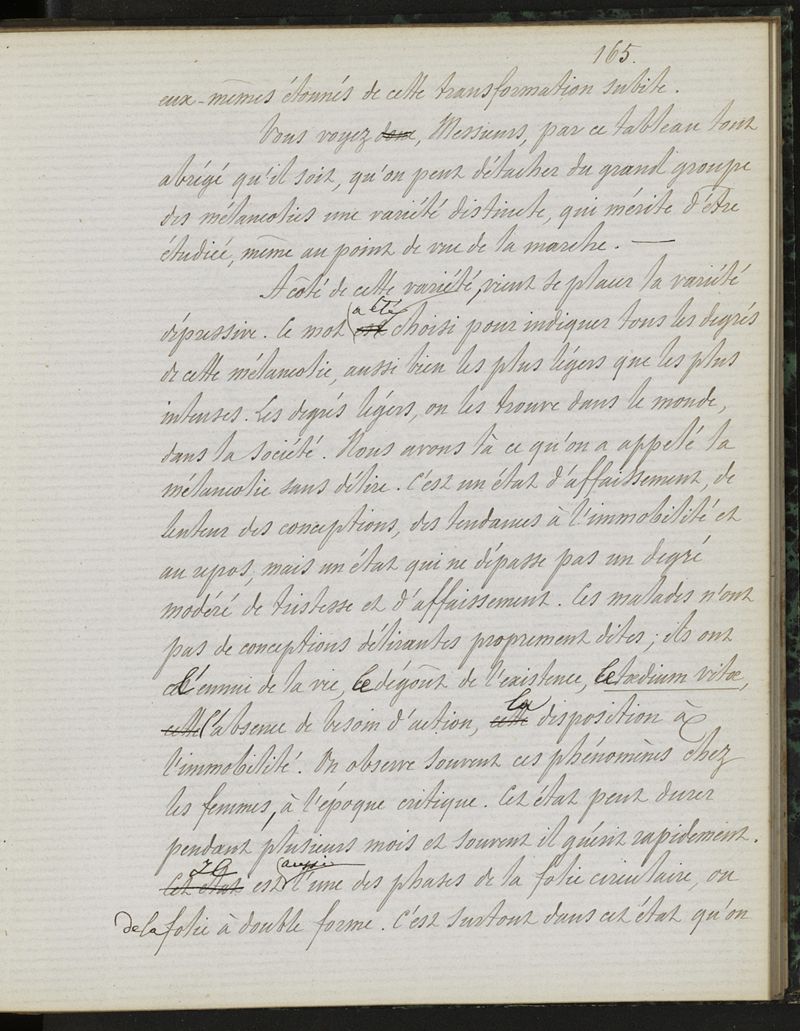 165.
eux-mêmes étonnés de cette transformation subite.
Vous voyez donc, Messieurs, par ce tableau tout
abrégé qu'il soit, qu'on peut détacher du grand groupe
des mélancolies une variété distincte, qui mérite d'être
étudiée, même au point de vue de la marche. —
A côté de cette variété, vient se placer la variété
a été
dépressive. Ce mot est choisi pour indiquer tous les degrés
de cette mélancolie, aussi bien les plus légers que les plus
intenses. Les degrés légers, on les trouve dans le monde,
dans la société. Nous avons là ce qu'on a appelé la
mélancolie sans délire. C'est un état d'affaissement, de
lenteur des conceptions, des tendances à l'immobilité et
au repos, mais un état qui ne dépasse pas un degré
modéré de tristesse et d'affaissement. Ces malades n'ont
pas de conceptions délirantes proprement dites; ils ont
l'ennui de la vie, le dégoût de l'existence, le tœdium vitœ,
la
cette l'absence de besoin d'action, cette disposition à
l'immobilité. On observe souvent ces phénomènes chez
les femmes, à l'époque critique. Cet état peut durer
pendant plusieurs mois et souvent il guérit rapidement.
aussi
Cet état est l'une des phases de la folie circulaire, ou
de la folie à double forme. C'est surtout dans cet état qu'on